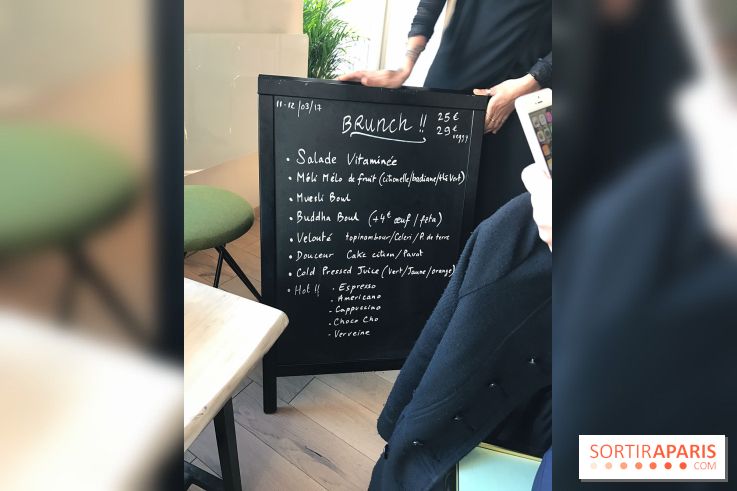 11-12/03/17
BRunch !! 25€
29€ veggy
• Salade Vitaminée
• Méli Mélo de fruit (citronelle/badiane/thé Vert)
• Muesli Boul
• Buddha Boul (+4€ œuf / feta)
• Velouté topinambour/Céleri/P. de terre
• Douceur Cake citron/Pavot
• Cold Pressed Juice (Vert/Jaune/orange)
• Hot !! - Espresso
- Americano
- Cappuccino
- Choco Cho
- Verveine
SORTIRAPARIS
.COM